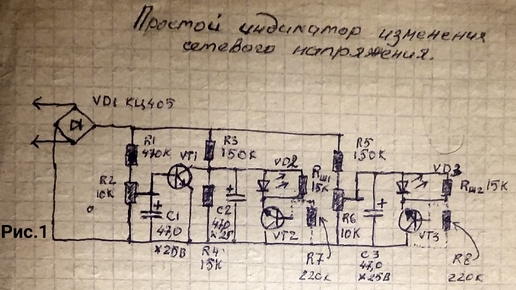 Простой индикатор изменения
сетевого напряжения.
VD1 КЦ405
R1
470К
VT1
R3
150К
R5
150К
VD2
VD3
Rш1
15К
Rш2 15К
R2
10К
C1
47,0
×25В
C2
47,0
×25
R4
15К
VT2
R7
220К
R6
10К
C3
47,0
×25В
VT3
R8
220К
Рис.1